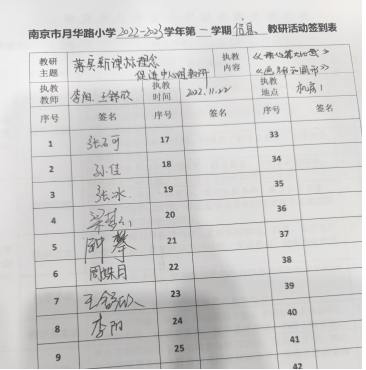 南京市月华路小学2022-2023学年第一学期信息、教研活动签到表
教研主题 落实新课标理念
执教内容
执教教师 李阳、王舒欣 执教时间 2022.11.22 执教地点 机房1
序号 签名 序号 签名 序号 签名
1 张石可 17 33
2 孙佳 18 34
3 张冰 19 35
4 20 36
5 钟攀 21 37
6 周姝月 22 38
7 王舒欣 23 39
8 李阳 24 40
9 25 41
42